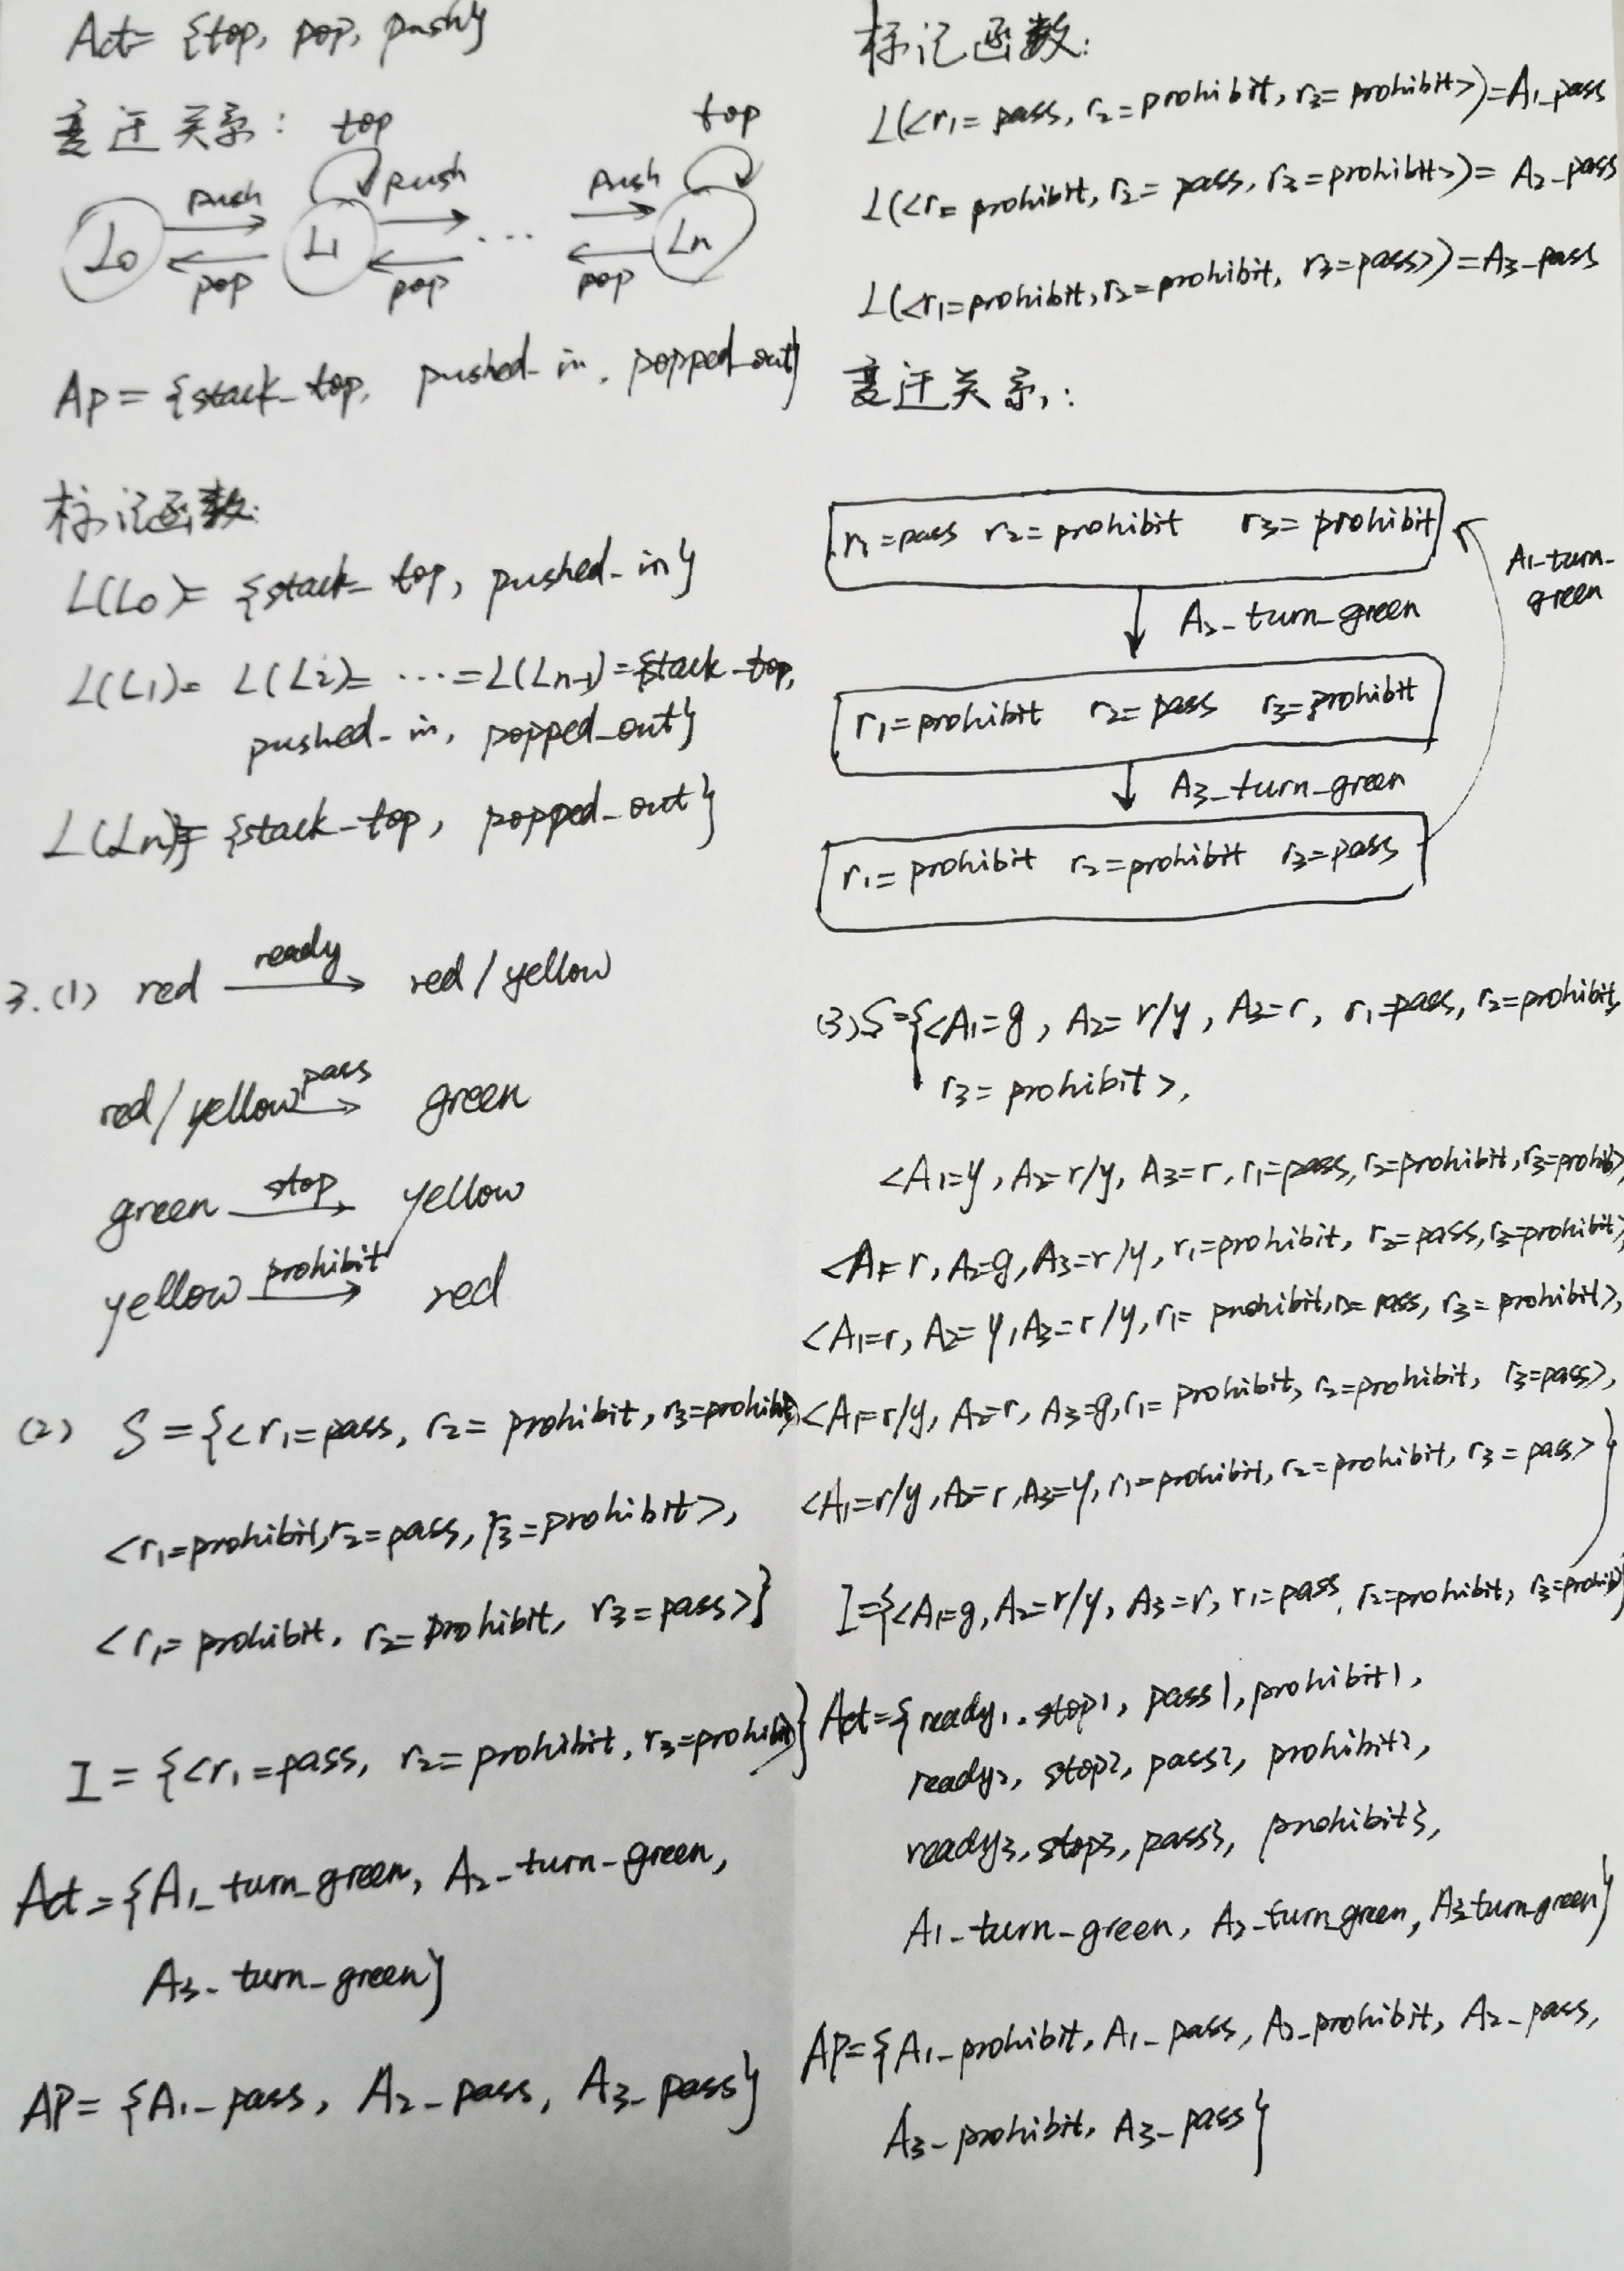 Act = {top, pop, push}
变迁关系:
top
top
push
push
push
L0
L1
...
Ln
pop
pop
pop
AP = {stack_top, pushed_in, popped_out}
标记函数:
L(L0) = {stack_top, pushed_in}
L(L1) = L(L2) = ... = L(Ln-1) = {stack_top,
pushed_in, popped_out}
L(Ln) = {stack_top, popped_out}
3.(1) red —ready→ red/yellow
red/yellow —pass→ green
green —stop→ yellow
yellow —prohibit→ red
(2) S = {<r1=pass, r2=prohibit, r3=prohibit>,
<r1=prohibit, r2=pass, r3=prohibit>,
<r1=prohibit, r2=prohibit, r3=pass>}
I = {<r1=pass, r2=prohibit, r3=prohibit>}
Act = {A1_turn_green, A2_turn_green,
A3_turn_green}
AP = {A1_pass, A2_pass, A3_pass}
标记函数:
L(<r1=pass, r2=prohibit, r3=prohibit>) = A1_pass
L(<r=prohibit, r2=pass, r3=prohibit>) = A2_pass
L(<r1=prohibit, r2=prohibit, r3=pass>) = A3_pass
变迁关系:
r1=pass r2=prohibit r3=prohibit
A1_turn_
green
A2_turn_green
r1=prohibit r2=pass r3=prohibit
A3_turn_green
r1=prohibit r2=prohibit r3=pass
(3) S={<A1=g, A2=r/y, A3=r, r1=pass, r2=prohibit,
r3=prohibit>,
<A1=y, A2=r/y, A3=r, r1=pass, r2=prohibit, r3=prohib>,
<A1=r, A2=g, A3=r/y, r1=prohibit, r2=pass, r3=prohibit>,
<A1=r, A2=y, A3=r/y, r1=prohibit, r2=pass, r3=prohibit>,
<A1=r/y, A2=r, A3=g, r1=prohibit, r2=prohibit, r3=pass>,
<A1=r/y, A2=r, A3=y, r1=prohibit, r2=prohibit, r3=pass>}
I={<A1=g, A2=r/y, A3=r, r1=pass, r2=prohibit, r3=prohibit>}
Act={ready1, stop1, pass1, prohibit1,
ready2, stop2, pass2, prohibit2,
ready3, stop3, pass3, prohibit3,
A1_turn_green, A2_turn_green, A3_turn_green}
AP={A1_prohibit, A1_pass, A2_prohibit, A2_pass,
A3_prohibit, A3_pass}